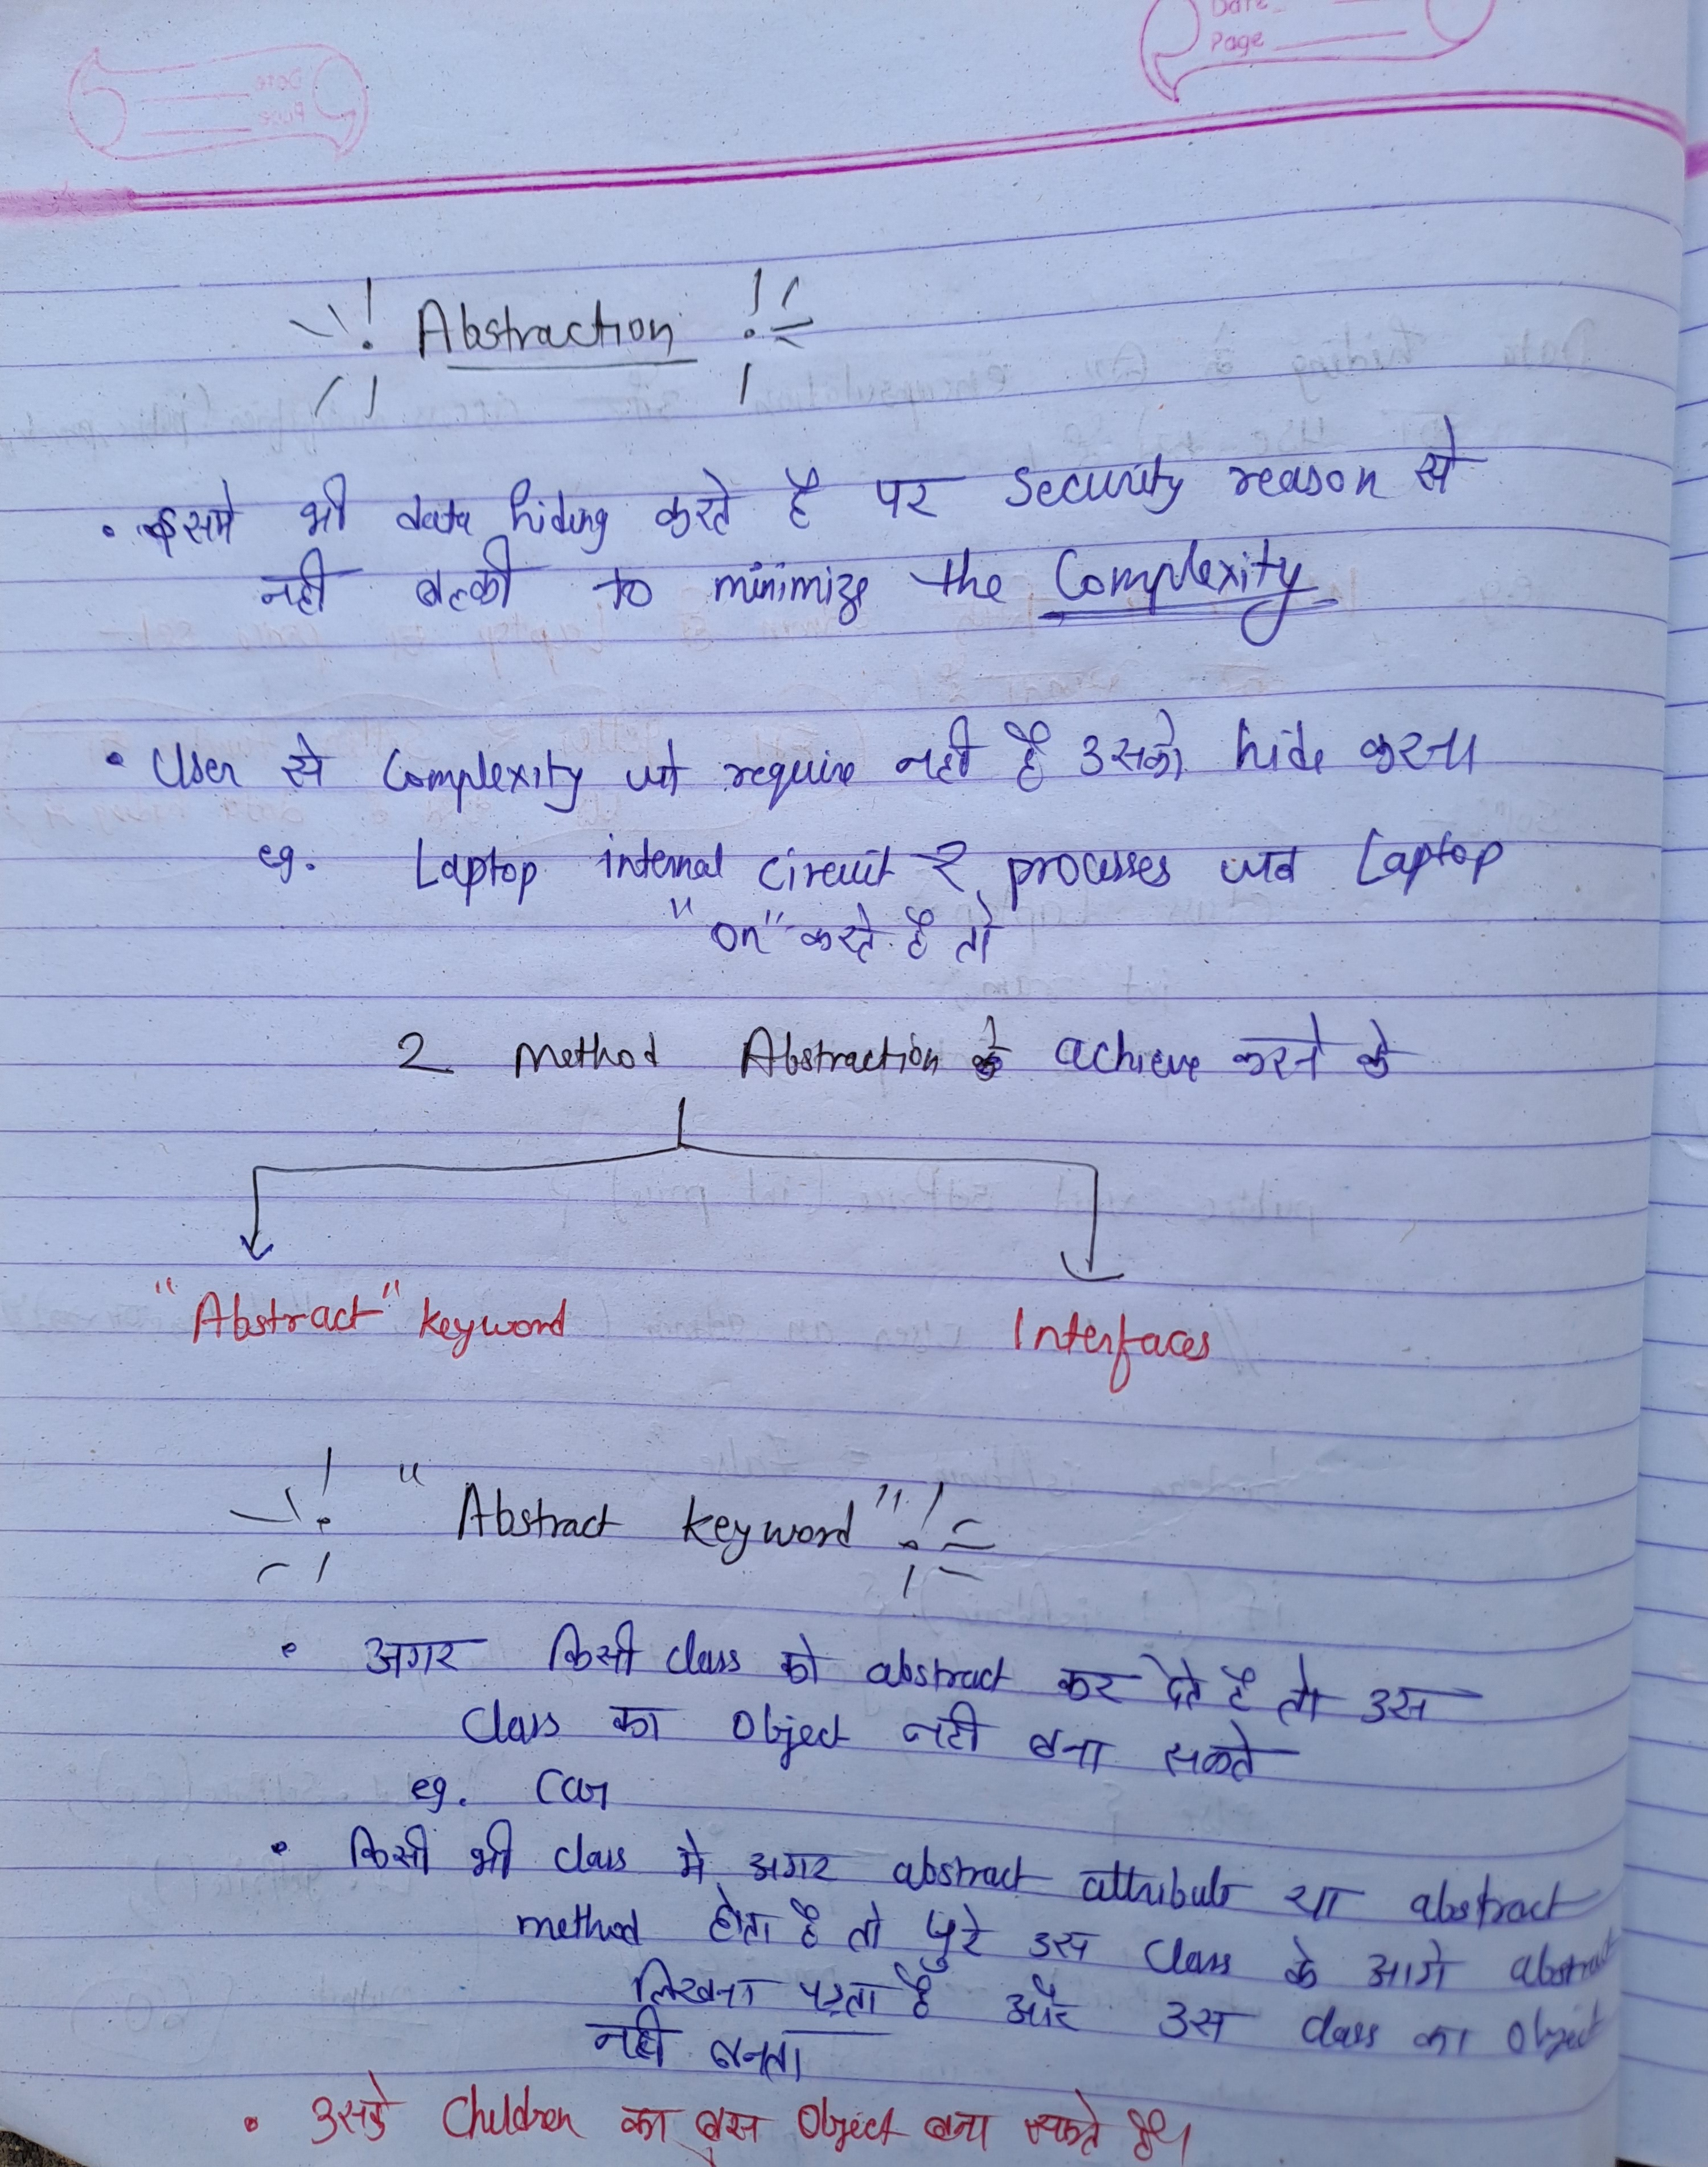 Date
Page
Abstraction
• इसमे भी data hiding करते है पर Security reason से
नही बल्की to minimize the Complexity
• User से Complexity जो require नही है उसको hide करना
eg. Laptop internal circuit & processes जब Laptop
"on" करते है तो
2 method Abstraction को achieve करने के
"Abstract" keyword Interfaces
"Abstract keyword"
• अगर किसी class को abstract कर देते है तो उस
Class का Object नही बना सकते
eg. Car
• किसी भी class मे अगर abstract attribute या abstract
method होता है तो पुरे उस Class के आगे abstract
लिखना पड़ता है और उस class का Object
नही बनता
• उसके Children का बस Object बना सकते है।